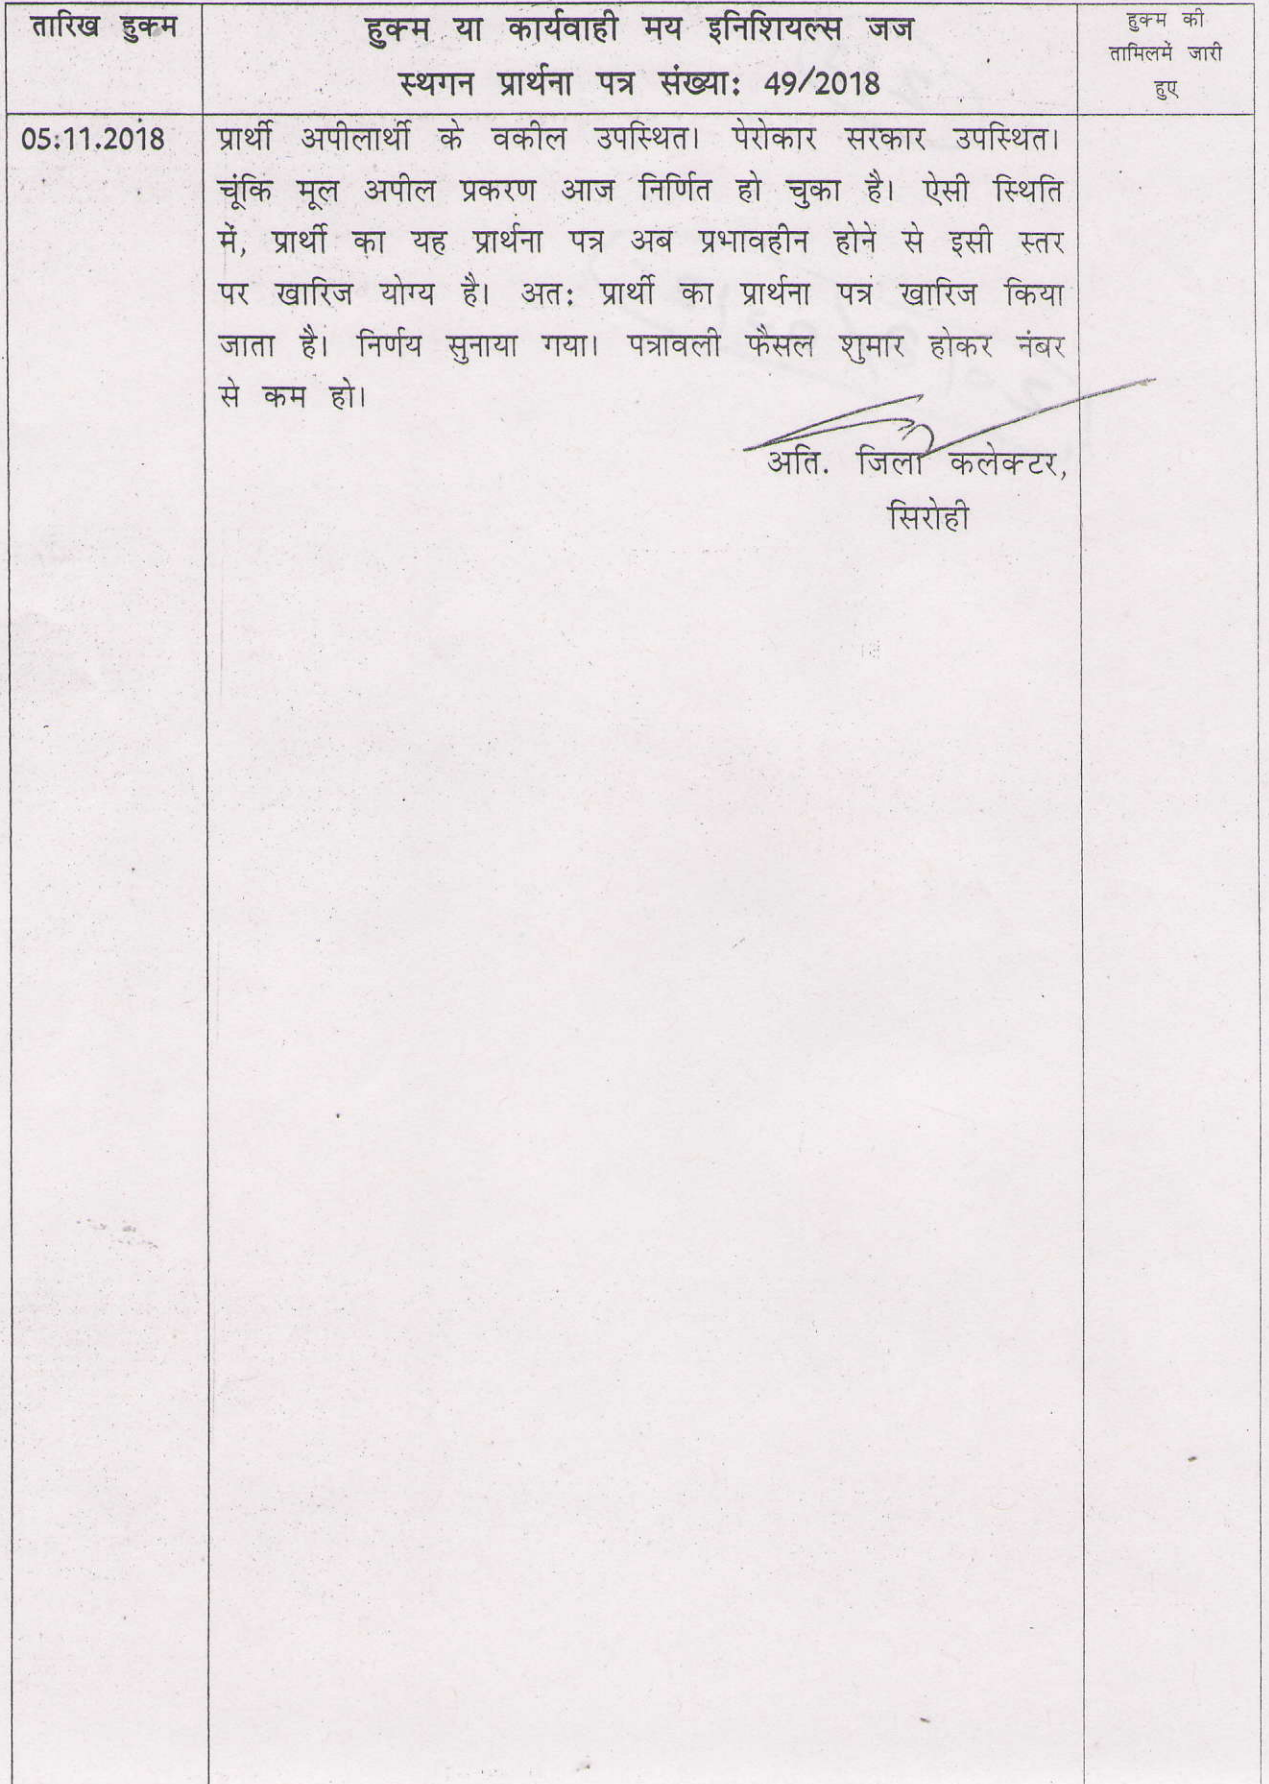 तारिख हुकम
हुक्म या कार्यवाही मय इनिशियल्स जज
स्थगन प्रार्थना पत्र संख्या: 49/2018
हुक्म की
तामिलमें जारी
हुए
05:11.2018
प्रार्थी अपीलार्थी के वकील उपस्थित। पेरोकार सरकार उपस्थित।
चूंकि मूल अपील प्रकरण आज निर्णित हो चुका है। ऐसी स्थिति
में, प्रार्थी का यह प्रार्थना पत्र अब प्रभावहीन होने से इसी स्तर
पर खारिज योग्य है। अत: प्रार्थी का प्रार्थना पत्र खारिज किया
जाता है। निर्णय सुनाया गया। पत्रावली फैसल शुमार होकर नंबर
से कम हो।
अति. जिला कलेक्टर,
सिरोही